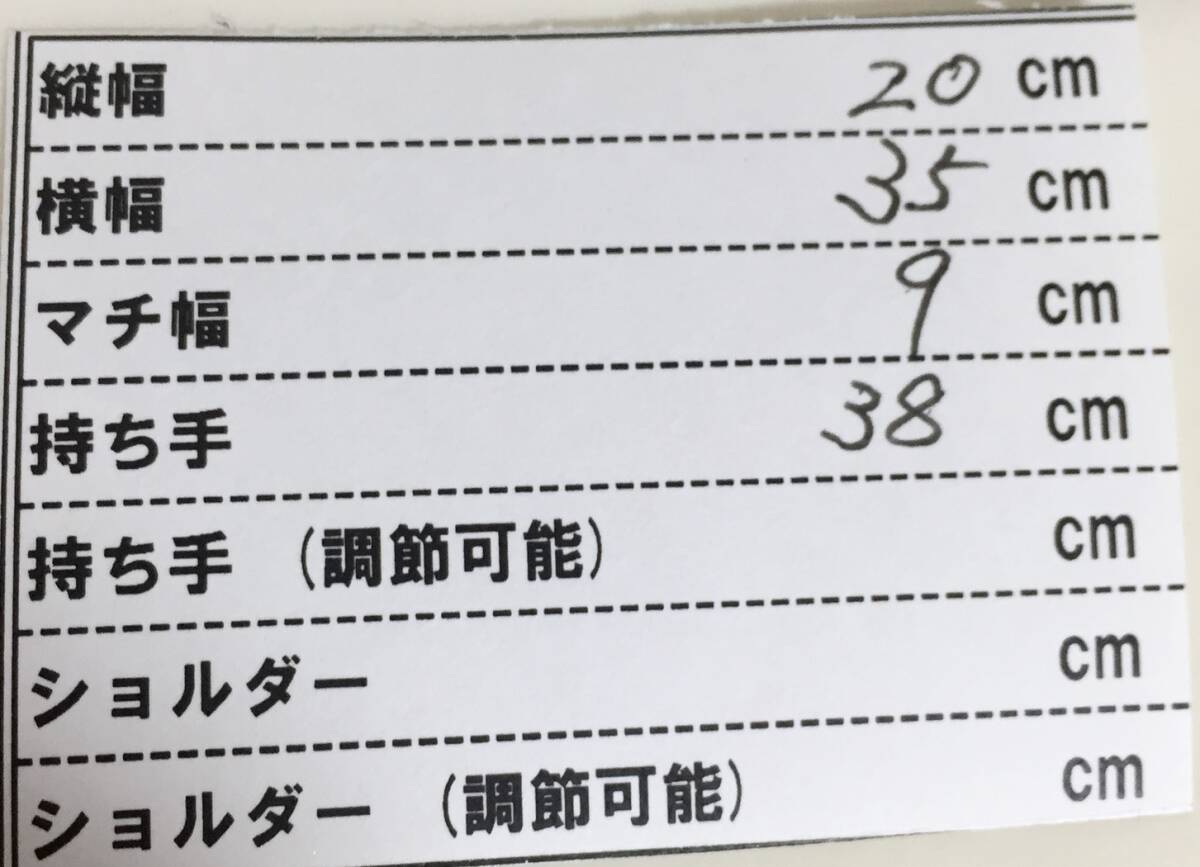 縦幅 20 cm
横幅 35 cm
マチ幅 9 cm
持ち手 38 cm
持ち手 (調節可能) cm
ショルダー cm
ショルダー (調節可能) cm